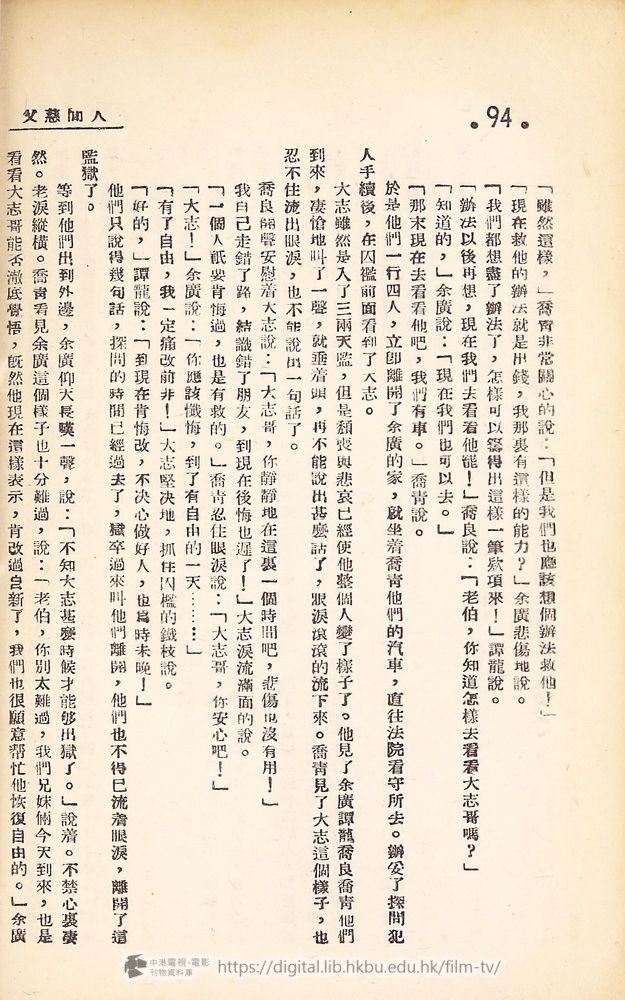 •94•
人間慈父
「雖然這樣，」喬靑非常關心的說：「但是我們也應該想個辦法救他！」
「現在救他的辦法就是出錢，我那裏有這樣的能力？」余廣悲傷地說。
「我們都想盡了辦法了，怎樣可以籌得出這樣一筆欵項來！」譚龍說。
「辦法以後再想，現在我們去看看他罷！」喬良說：「老伯，你知道怎樣去看看大志哥嗎？」
「知道的，」余廣說：「現在我們也可以去。」
「那末現在去看看他吧，我們有車。」喬靑說。
於是他們一行四人，立卽離開了余廣的家，就坐着喬靑他們的汽車，直往法院看守所去。辦妥了探問犯
人手續後，在囚檻前面看到了大志。
大志雖然是入了三兩天監，但是頹喪與悲哀已經使他整個人變了樣子了。他見了余廣譚龍喬良喬靑他們
到來，凄愴地叫了一聲，就垂着頭，再不能說出甚麼話了，眼淚滾滾的流下來。喬靑見了大志這個樣子，也
忍不住流出眼淚，也不能說出一句話了。
喬良帥聲安慰着大志說：「大志哥，你靜靜地在這裏一個時間吧，悲傷也沒有用！」
我自己走錯了路，結識錯了朋友，到現在後悔也遲了！」大志淚流滿面的說。
「一個人祇要肯悔過，也是有救的。」喬靑忍住眼淚說：「大志哥，你安心吧！」
「大志！」余廣說：「你應該懺悔，到了有自由的一天………」
「有了自由，我一定痛改前非！」大志堅决地，抓住囚檻的鐵枝說。
「好的，」譚龍說：「到現在肯悔改，不决心做好人，也爲時未晚！」
他們只說得幾句話，探問的時間已經過去了，獄卒過來叫他們離開，他們也不得已流着眼淚，離開了這
監獄了。
等到他們出到外邊，余廣仰天長嘆一聲，說：「不知大志甚麼時候才能够出獄了。」說着。不禁心裏凄
然。老淚縱橫。喬靑看見余廣這個樣子也十分難過，說：「老伯，你別太難過，我們兄妹倆今天到來，也是
看看大志哥能否澈底覺悟，旣然他現在這樣表示，肯改過自新了，我們也很願意帮忙他恢復自由的。」余廣
中港電視·電影
刊物資料庫
https://digital.lib.hkbu.edu.hk/film-tv/